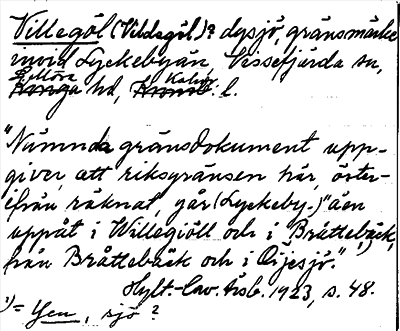 Villegöl (Vildagöl)? dysjö, gränsmärke
invid Lyckebyån, Vissefjärda sn,
Södra Möre
Konga hd, Kronob. Kalm. l.
"Nämnda gränsdokument upp-
giver, att riksgränsen här, öster-
ifrån räknat, går (Lyckeby-)"åen
uppåt i Willegiöll och i Bråttebäck,
från Bråttebäck och i Öijesjö." ¹)
Hylt.-Cav. Årsb. 1923, s. 48.
¹) = Yen, sjö?